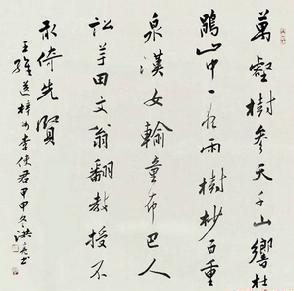 萬壑樹參天千山響杜
鵑山中一夜雨樹杪百重
泉漢女輸童布巴人
訟芋田文翁翻教授不
敢倚先賢
王維送梓州李使君甲申冬洪書